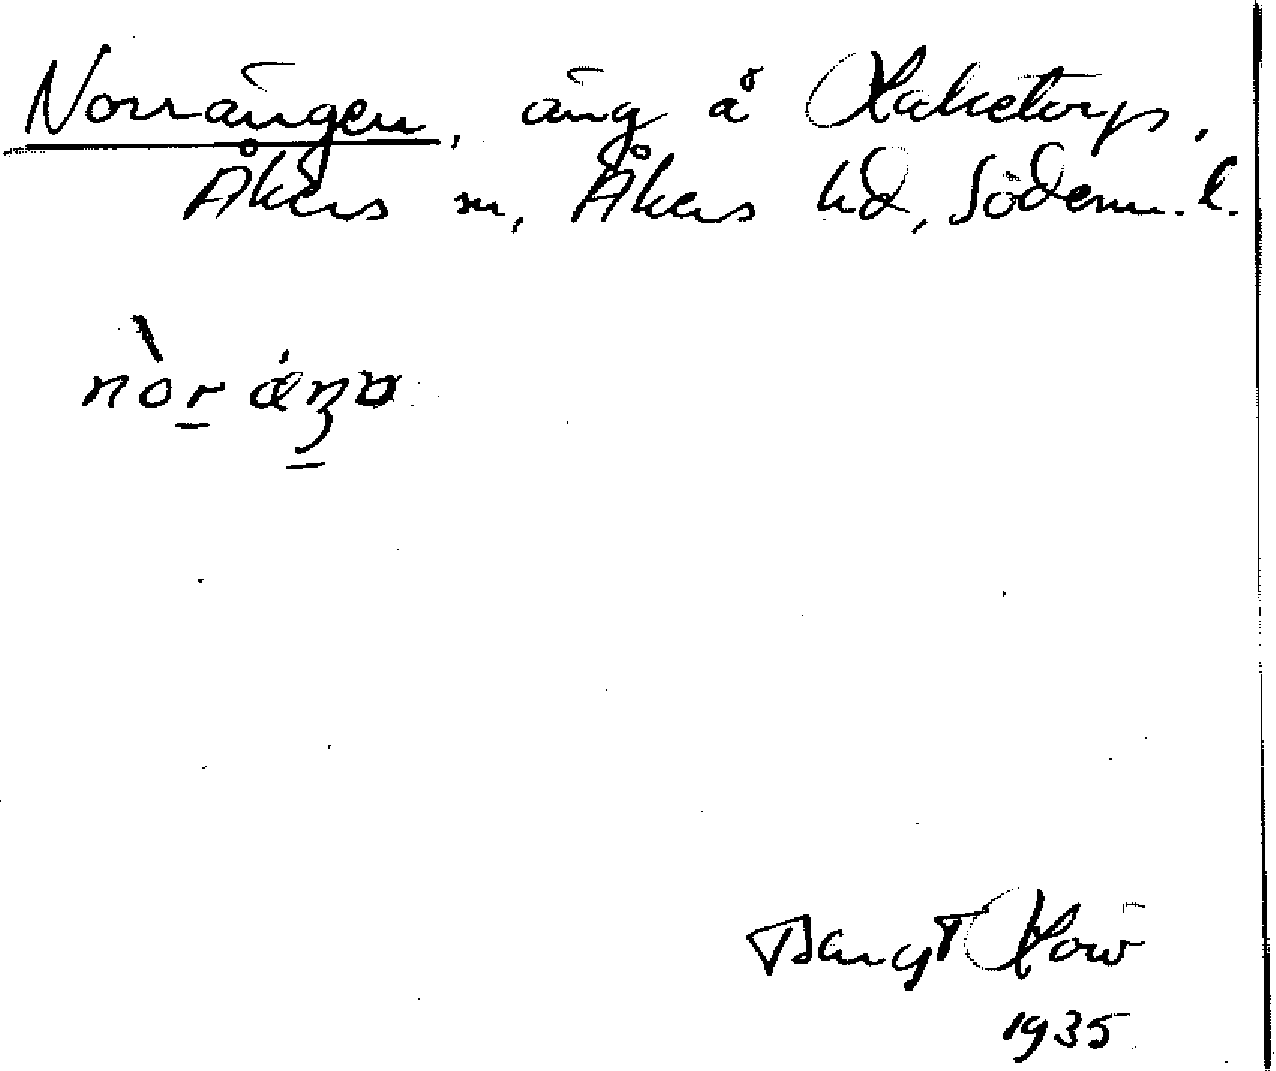 Norrängen, äng å Haketorp,
Åkers sn, Åkers hd, Söderm. l.
nòr ǽŋa
Bengt
1935